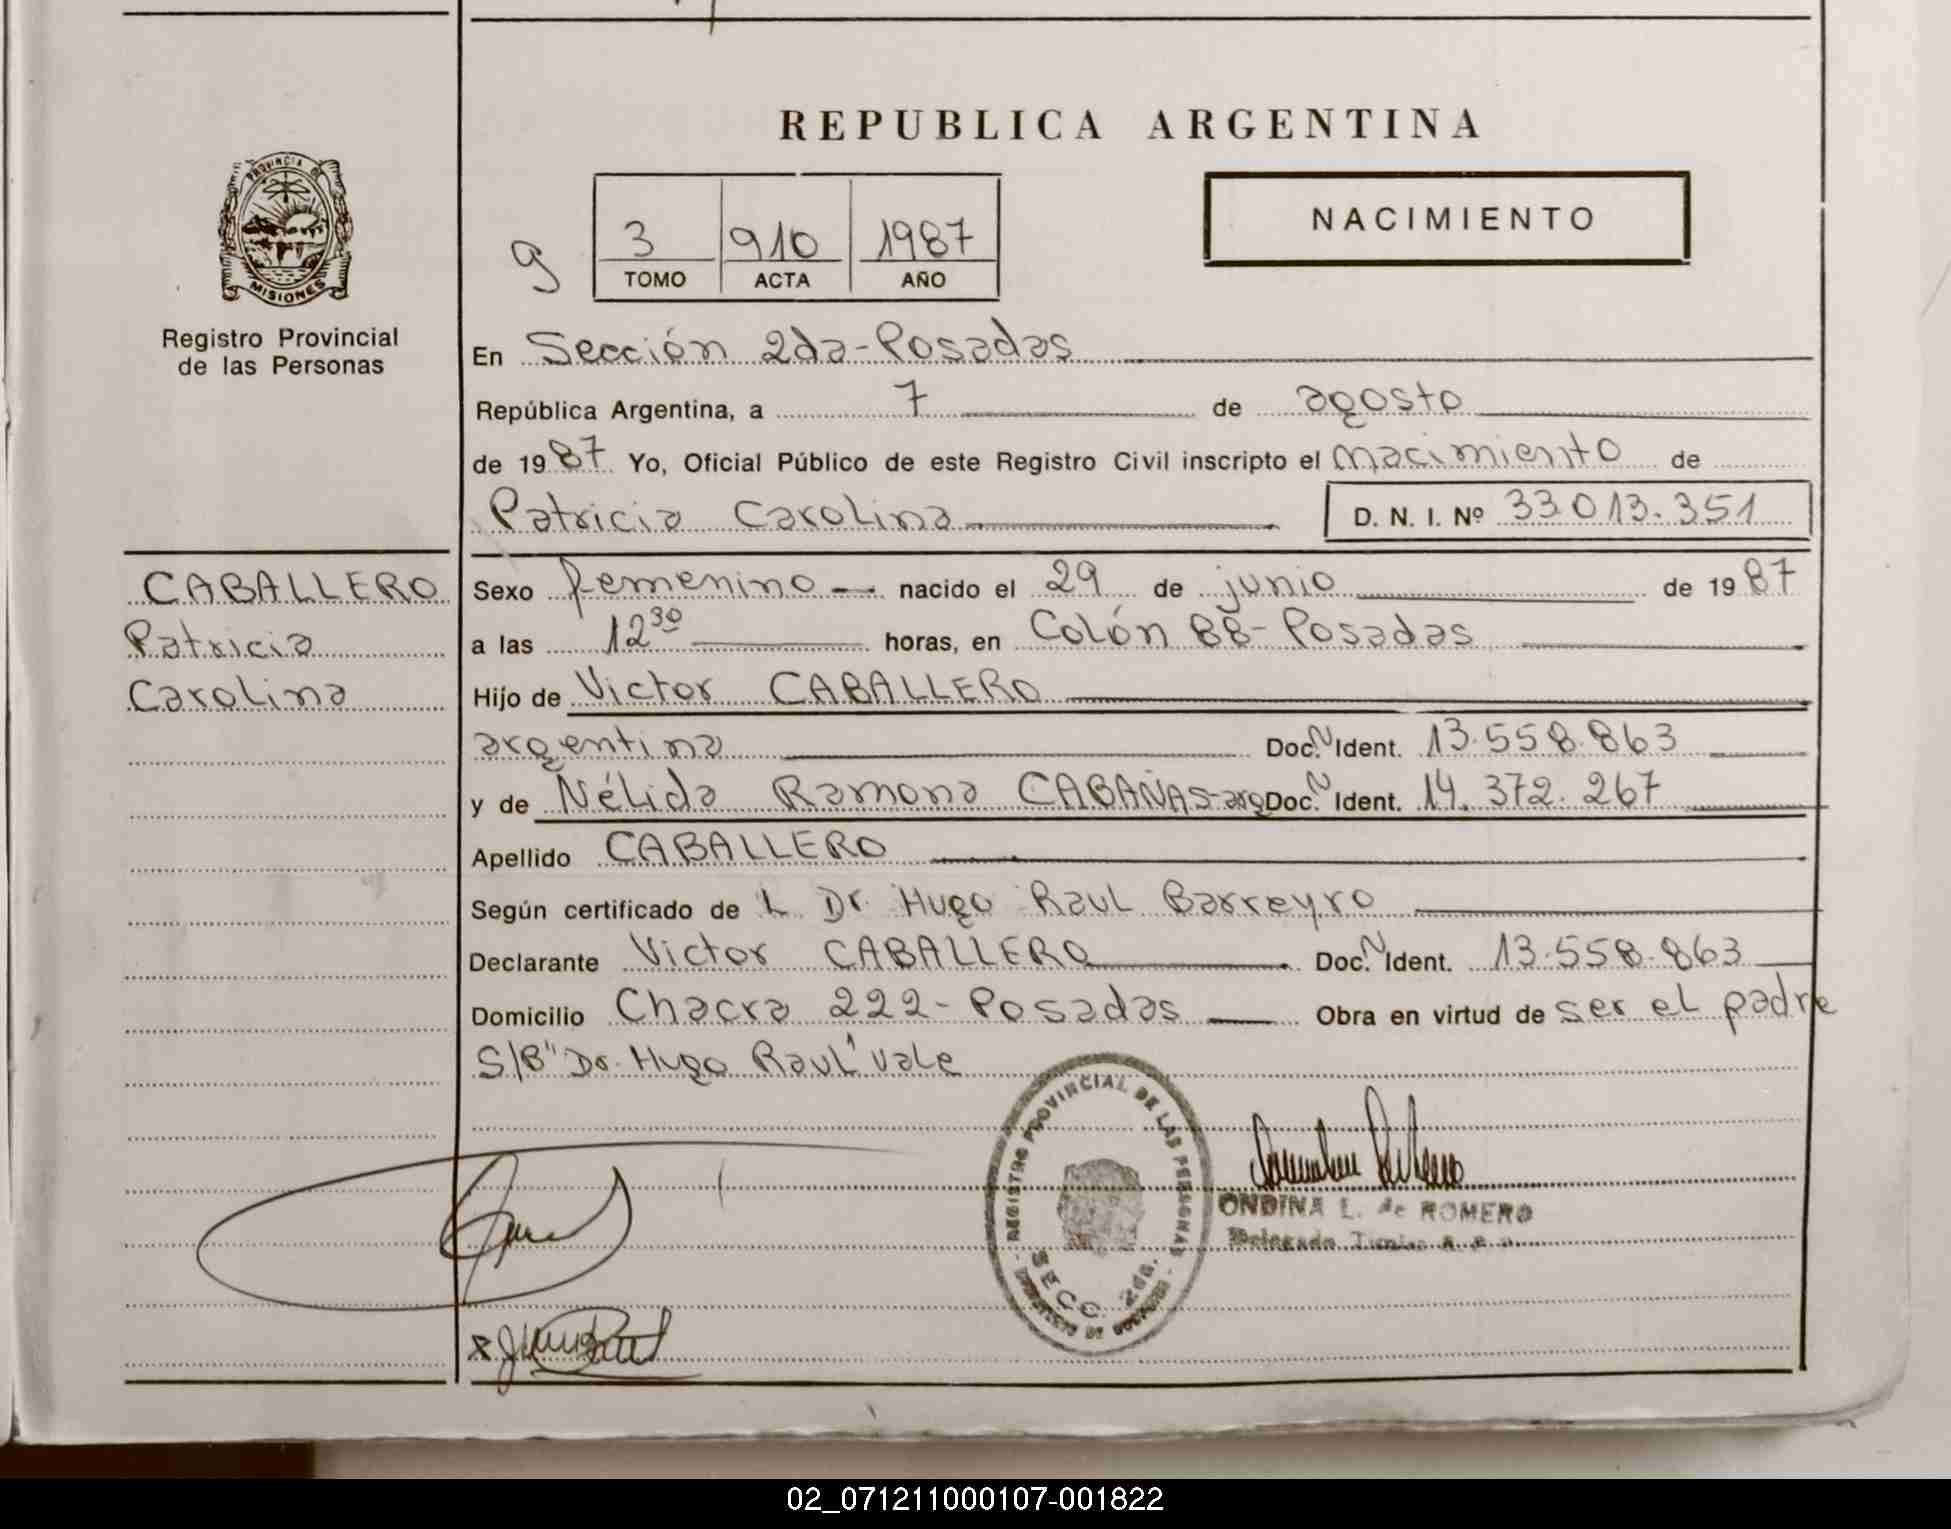 REPUBLICA ARGENTINA
PROVINCIA DE
MISIONES
Registro Provincial
de las Personas
NACIMIENTO
9
3 910 1987
TOMO ACTA AÑO
En Sección 2da-Posadas
República Argentina, a 7 de agosto
de 1987 Yo, Oficial Público de este Registro Civil inscripto el nacimiento de
Patricia Carolina D. N. I. Nº 33013.351
CABALLERO
Patricia
Carolina
Sexo femenino nacido el 29 de junio de 1987
a las 12 30 horas, en Colón 88-Posadas
Hijo de Victor CABALLERO
argentina Doc. N Ident. 13.558.863
y de Nélida Ramona CABAÑAS-arg Doc. N Ident. 14.372.267
Apellido CABALLERO
Según certificado de L Dr. Hugo Raul Barreyro
Declarante Victor CABALLERO Doc. N Ident. 13.558.863
Domicilio Chacra 222-Posadas Obra en virtud de ser el padre
S/B "Dr. Hugo Raul" vale
REGISTRO PROVINCIAL DE LAS PERSONAS
SECC. 2da.
ONDINA L. de ROMERO
02_071211000107-001822